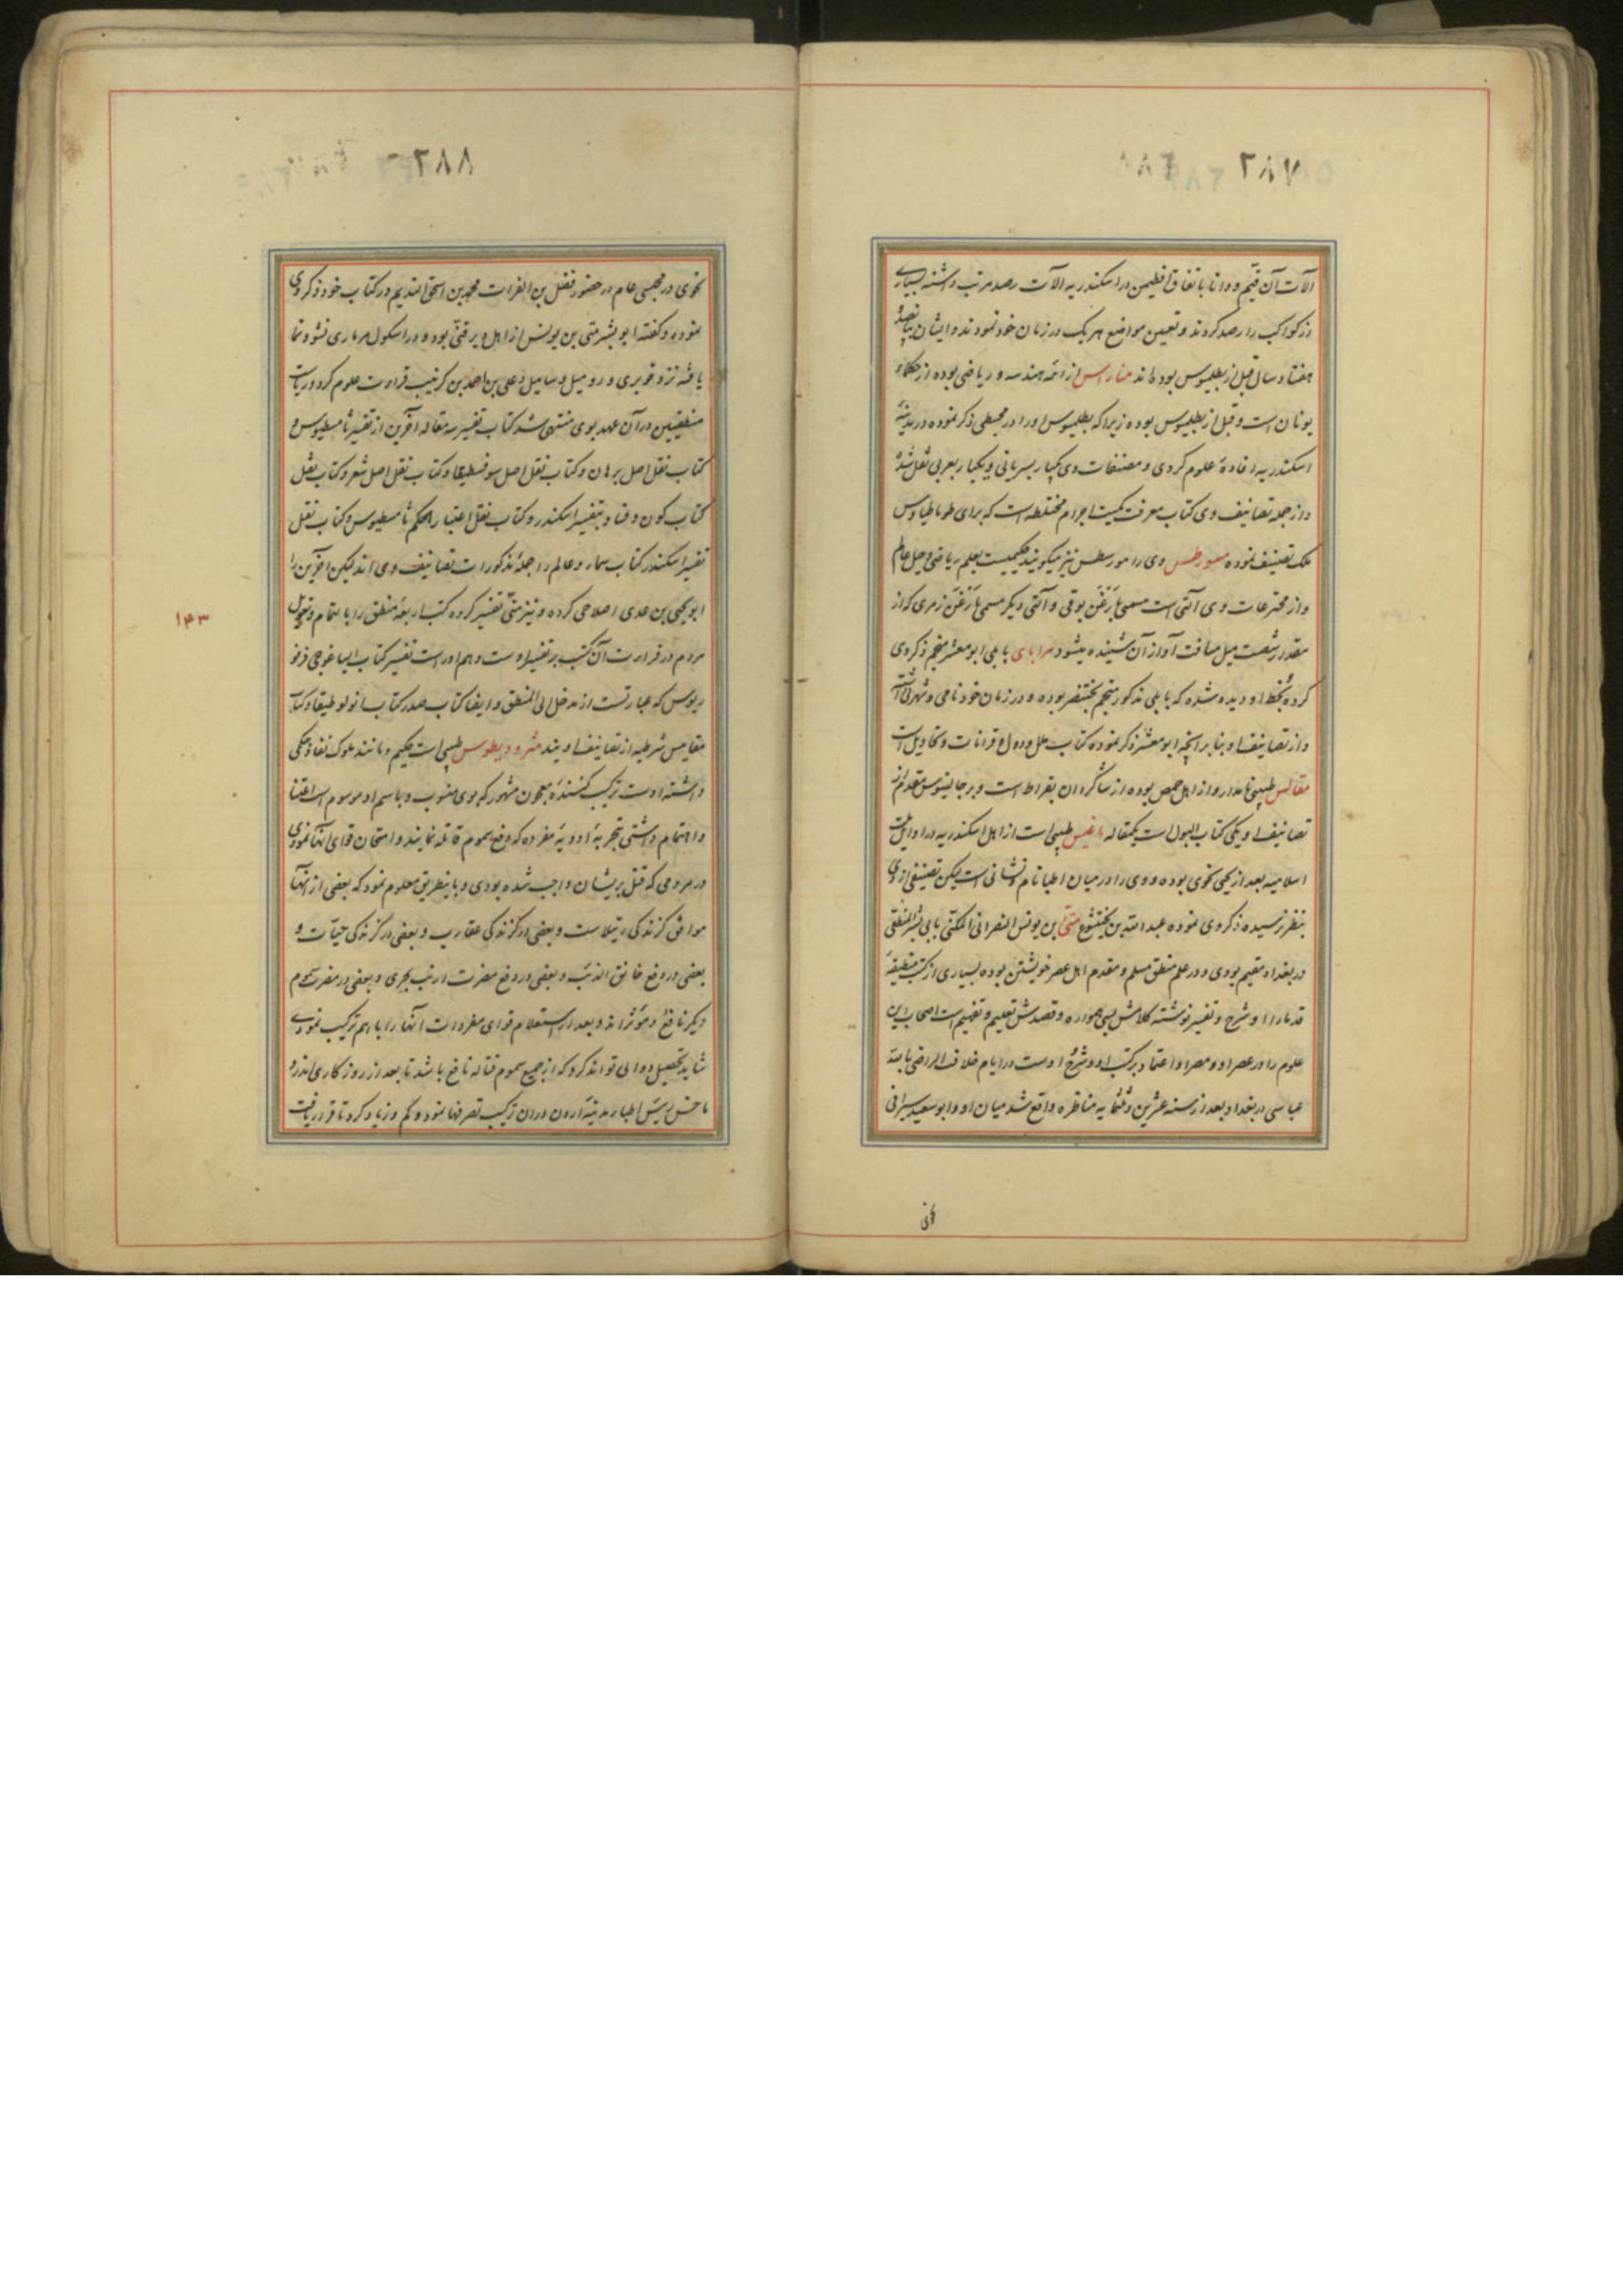 ۲۸۷
آلات آن قیّم و دانا باتفاق اقطیمن در اسکندریه آلات رصد مرتب داشته بسیاری
از کواکب را رصد کردند و تعیین مواضع هر یک در زمان خود نمودند و ایشان پانصد
هفتاد سال قبل از بطلیموس بوده‌اند منارس از ائمه هندسه و ریاضی بوده از حکماء
یونان است و قبل از بطلیموس بوده زیرا که بطلیموس او را در مجسطی ذکر نموده در مدینهٔ
اسکندریه افادهٔ علوم کردی و مصنفات وی یکبار بسریانی و یکبار بعربی نقل شده
و از جمله تصانیف وی کتاب معرفت کمیت اجرام مختلطه است که برای طوماطیاوس
ملک تصنیف نموده مورطس وی را مورسطس نیز میگویند حکیمیست بعلم ریاضی و حیل عالم
و از مخترعات وی آلتی است مسمی بارغنن بوقی و آلتی دیگر مسمی بارغنن زمری که از
مقدار شصت میل مسافت آواز آن شنیده میشود مرابای بابلی ابومعشر منجم ذکر وی
کرده بخط او دیده شده که بابلی مذکور منجم بختنصر بوده و در زمان خود نامی و شهرتی داشت
و از تصانیف او بنابر آنچه ابومعشر ذکر نموده کتاب ملل و دول و قرانات و تحاویل است
مقالس طبیبی نامدار و از اهل حمص بوده از شاگردان بقراط است و بر جالینوس مقدم از
تصانیف او یکی کتاب البول است یکمقاله ماغیس طبیبی است از اهل اسکندریه در اوایل ملت
اسلامیه بعد از یحیی نحوی بوده و وی را در میان اطبا نام و نشانی است لیکن تصنیفی از وی
بنظر نرسیده ذکر وی نموده عبدالله بن بختیشوع متی بن یونس النصرانی المکنی بابی بشر المنطقی
در بغداد مقیم بودی و در علم منطق مسلم و مقدم اهل عصر خویشتن بوده بسیاری از کتب منطقیهٔ
قدما را او شرح و تفسیر نوشته کلامش بسی هموار و قصدش تعلیم و تفهیم است اصحاب این
علوم را در عصر او و مصر او اعتماد بر کتب او و شرح اوست در ایام خلافت الراضی بالله
عباسی در بغداد بعد از سنه عشرین و ثلثمایه مناظره واقع شد میان او و ابوسعید سیرافی
۲۸۸
نحوی در مجلسی عام در حضور فضل بن الفرات محمد بن اسحق الندیم در کتاب خود ذکر وی
نموده و گفته ابوبشر متی بن یونس از اهل دیر قنّی بوده و در اسکول مرماری نشو و نما
یافته نزد قویری و روبیل و بنیامیل و علی بن احمد بن کرنیب قراءت علوم کرد و ریاست
منطقیین در آن عهد بوی منتهی شد کتاب تفسیر سه مقاله آخرین از تفسیر ثامسطیوس و
کتاب نقل اصل برهان و کتاب نقل اصل سوفسطیقا و کتاب نقل اصل شعر و کتاب نقل
کتاب کون و فساد بتفسیر اسکندر و کتاب نقل اعتبار الحکم ثامسطیوس و کتاب نقل
تفسیر اسکندر کتاب سماء و عالم را جمله مذکورات تصانیف وی اند لیکن آخرین را
ابو یحیی بن عدی اصلاحی کرده و نیز متّی تفسیر کرده کتب اربعهٔ منطق را با تمام و تعویل
مردم در قراءت آن کتب بر تفسیر اوست و هم او راست تفسیر کتاب ایساغوجی فرفو
ریوس که عبارتست از مدخل الی المنطق و ایضا کتاب صدر کتاب انولوطیقا و کتاب
مقاییس شرطیه از تصانیف اویند مثرودیطوس طبیبی است حکیم و مانند ملوک نفاذ حکمی
داشته اوست ترکیب کننده معجون مشهور که بوی منسوب و باسم او موسوم است اعتنا
و اهتمام داشتی بتجربهٔ ادویهٔ مفرده که دفع سموم قاتله نمایند و امتحان قوای آنها نمودی
در مردمی که قتل بریشان واجب شده بودی و باینطریق معلوم نمود که بعضی از آنها
موافق گزندگی رتیلاست و بعضی در گزندگی عقارب و بعضی در گزندگی حیّات و
بعضی در دفع خانق الذئب و بعضی در دفع مضرت ارنب بحری و بعضی در مضرت سموم
دیگر نافع و موثراند و بعد از استعلام قوای مفردات آنها را باهم ترکیب نمودی
شاید تحصیل دوائی تواند کرد که از جمیع سموم قتاله نافع باشد تا بعد از روزگاری اندرو
ماخس رییس اطباء مدینهٔ اردن در ان ترکیب تصرفها نمود و کم و زیاد کرد تا قرار یافت
۱۴۳
نحوی